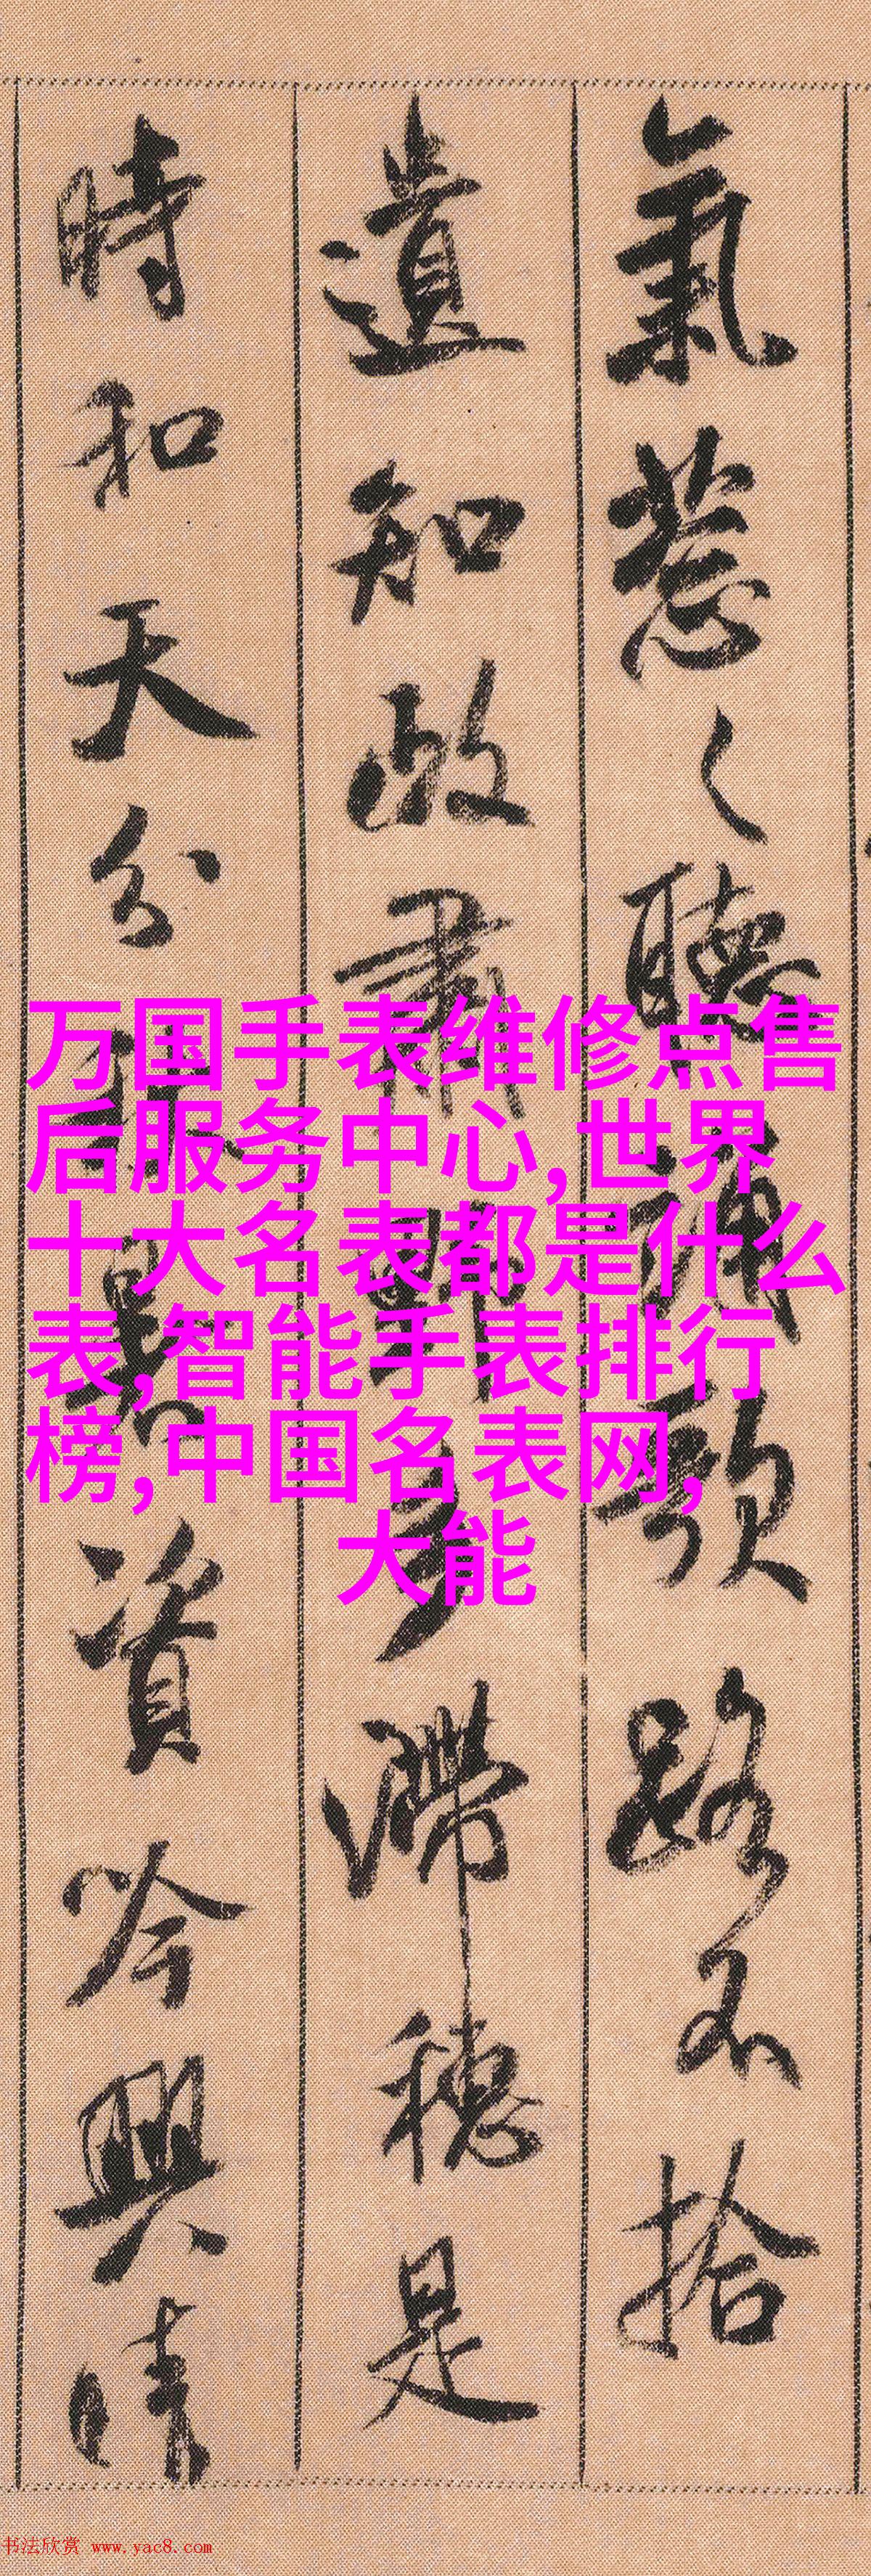 氣葱〻聽誦歌路不拾
遺知政肅野多滯穗是
時和天分秋暑資吟興晴
万国手表维修点售
后服务中心,世界
十大名表都是什么
表,智能手表排行
榜,中国名表网,
大能
书法欣赏 www.yac8.com